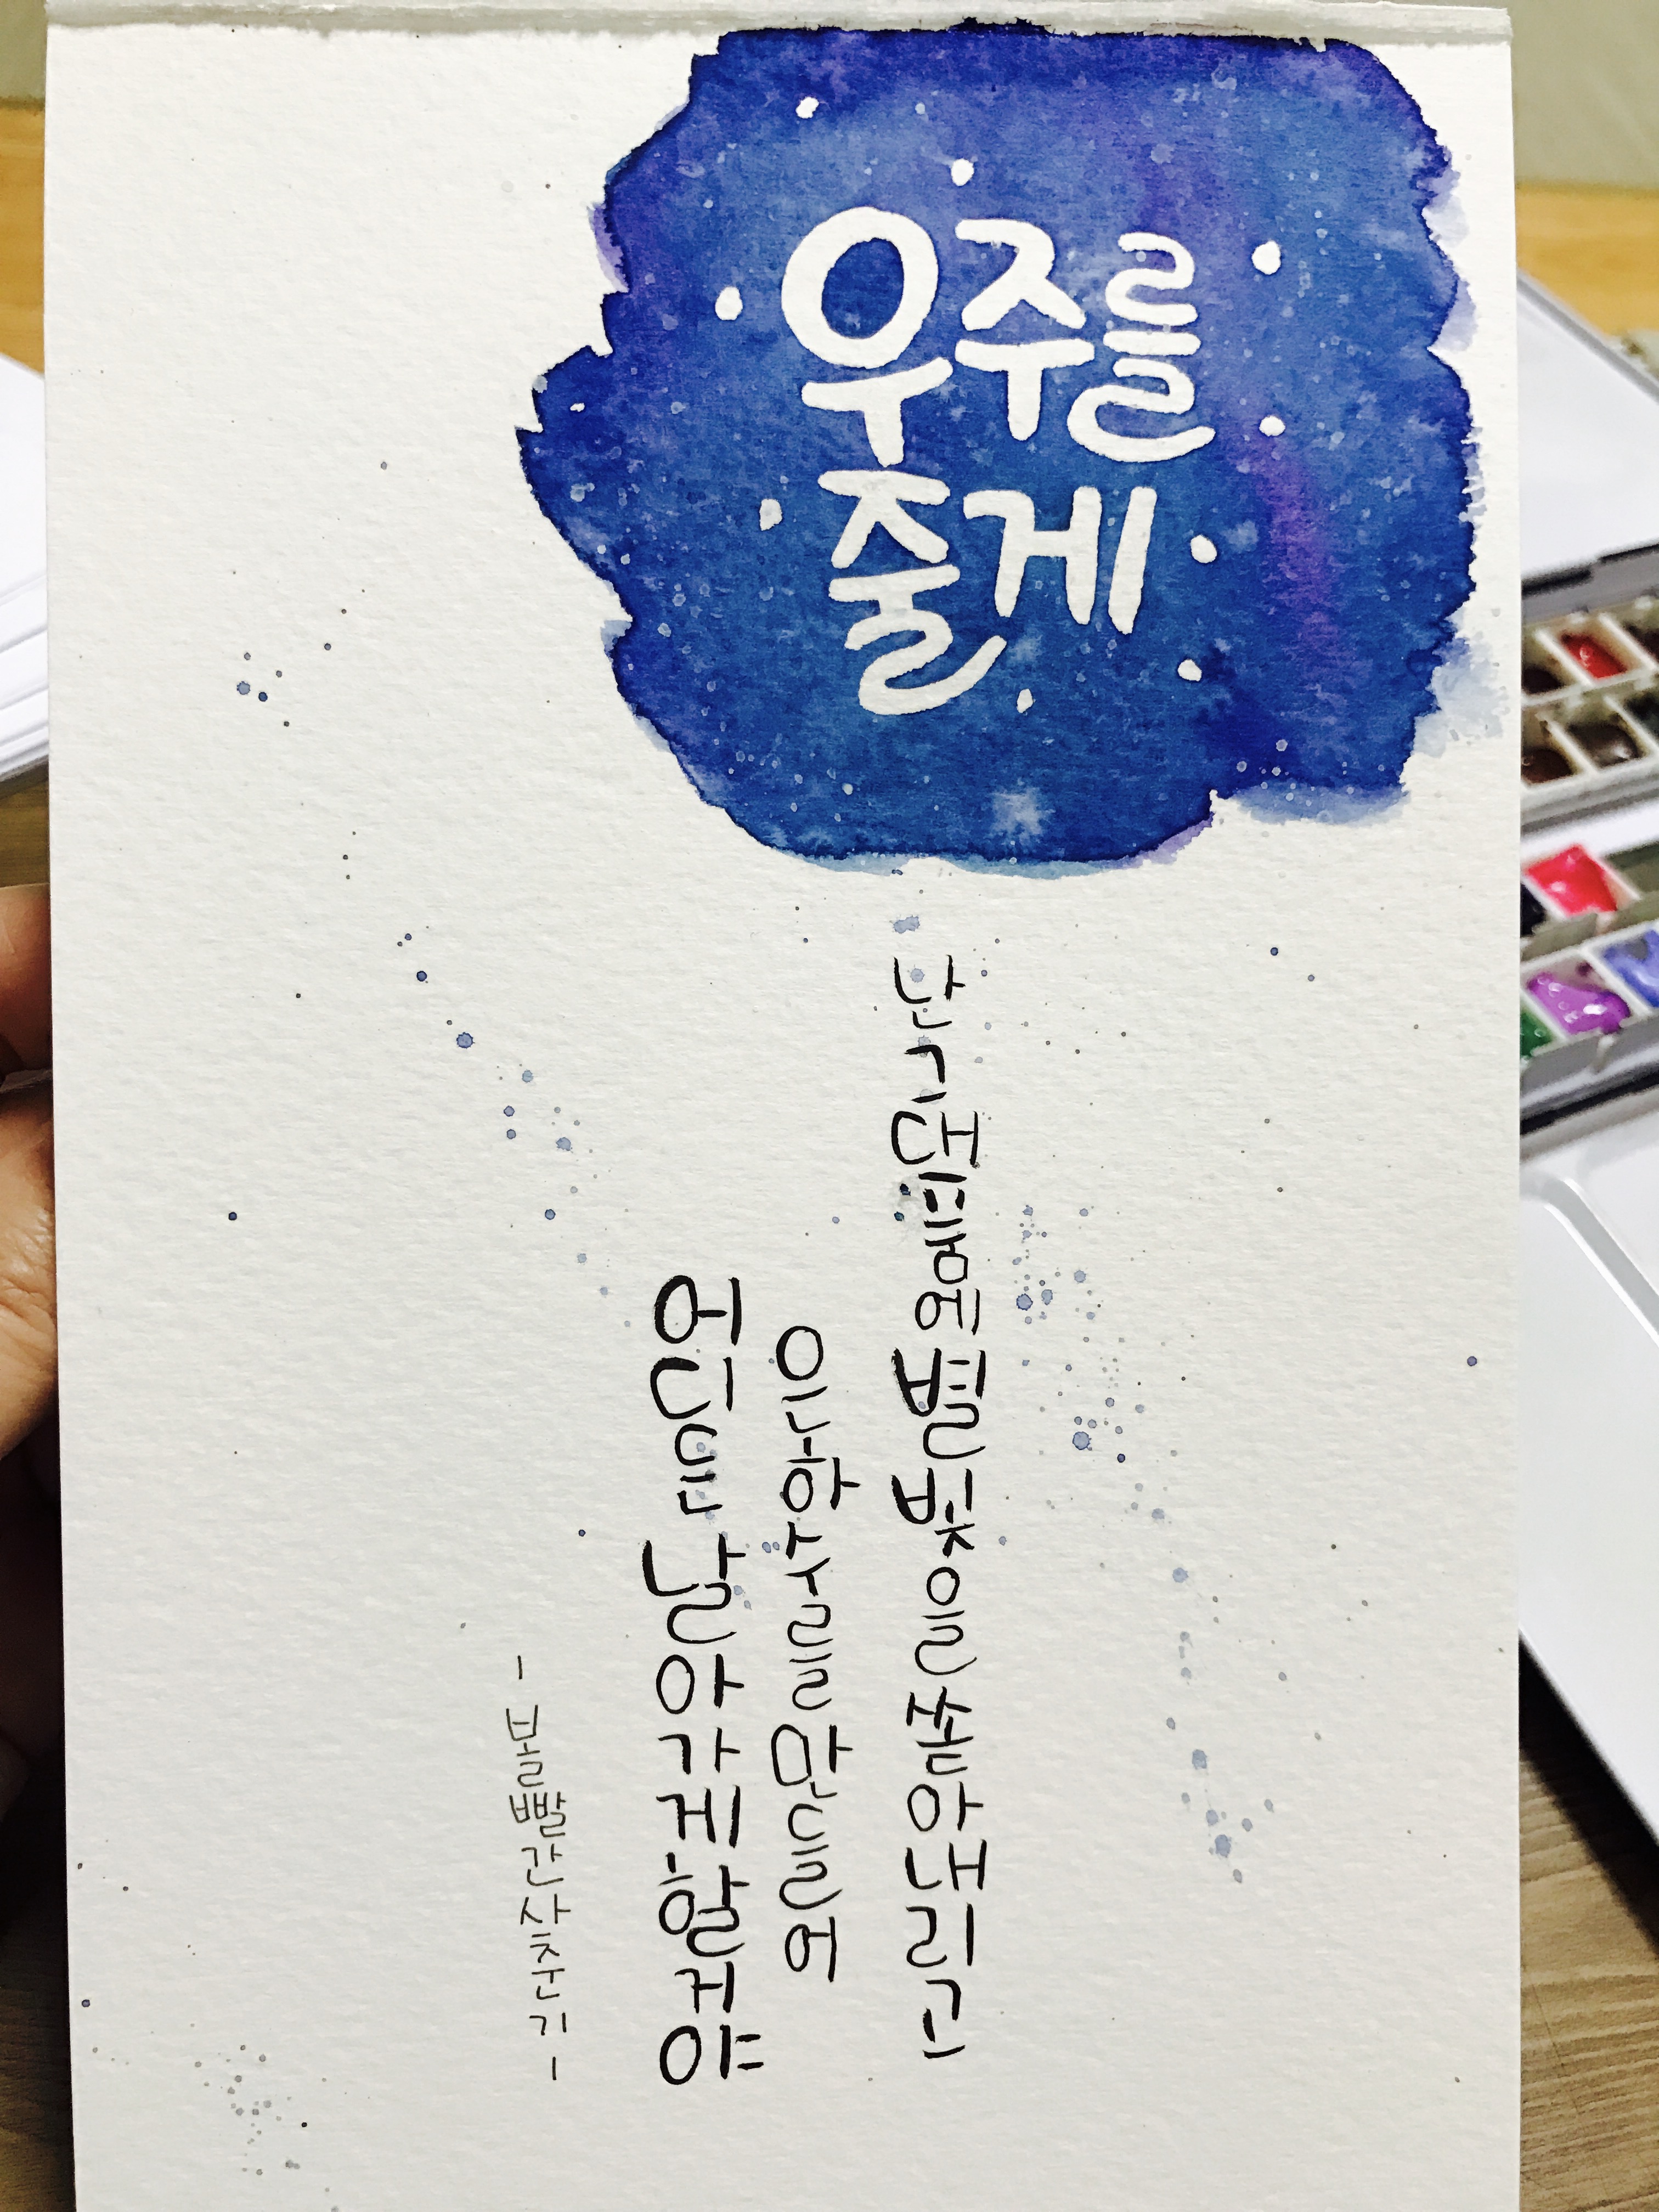 우주를
줄게
난 그대 품에 별빛을 쏟아 내리고
은하수를 만들어
어디든 날아가게 할거야
- 볼빨간사춘기 -